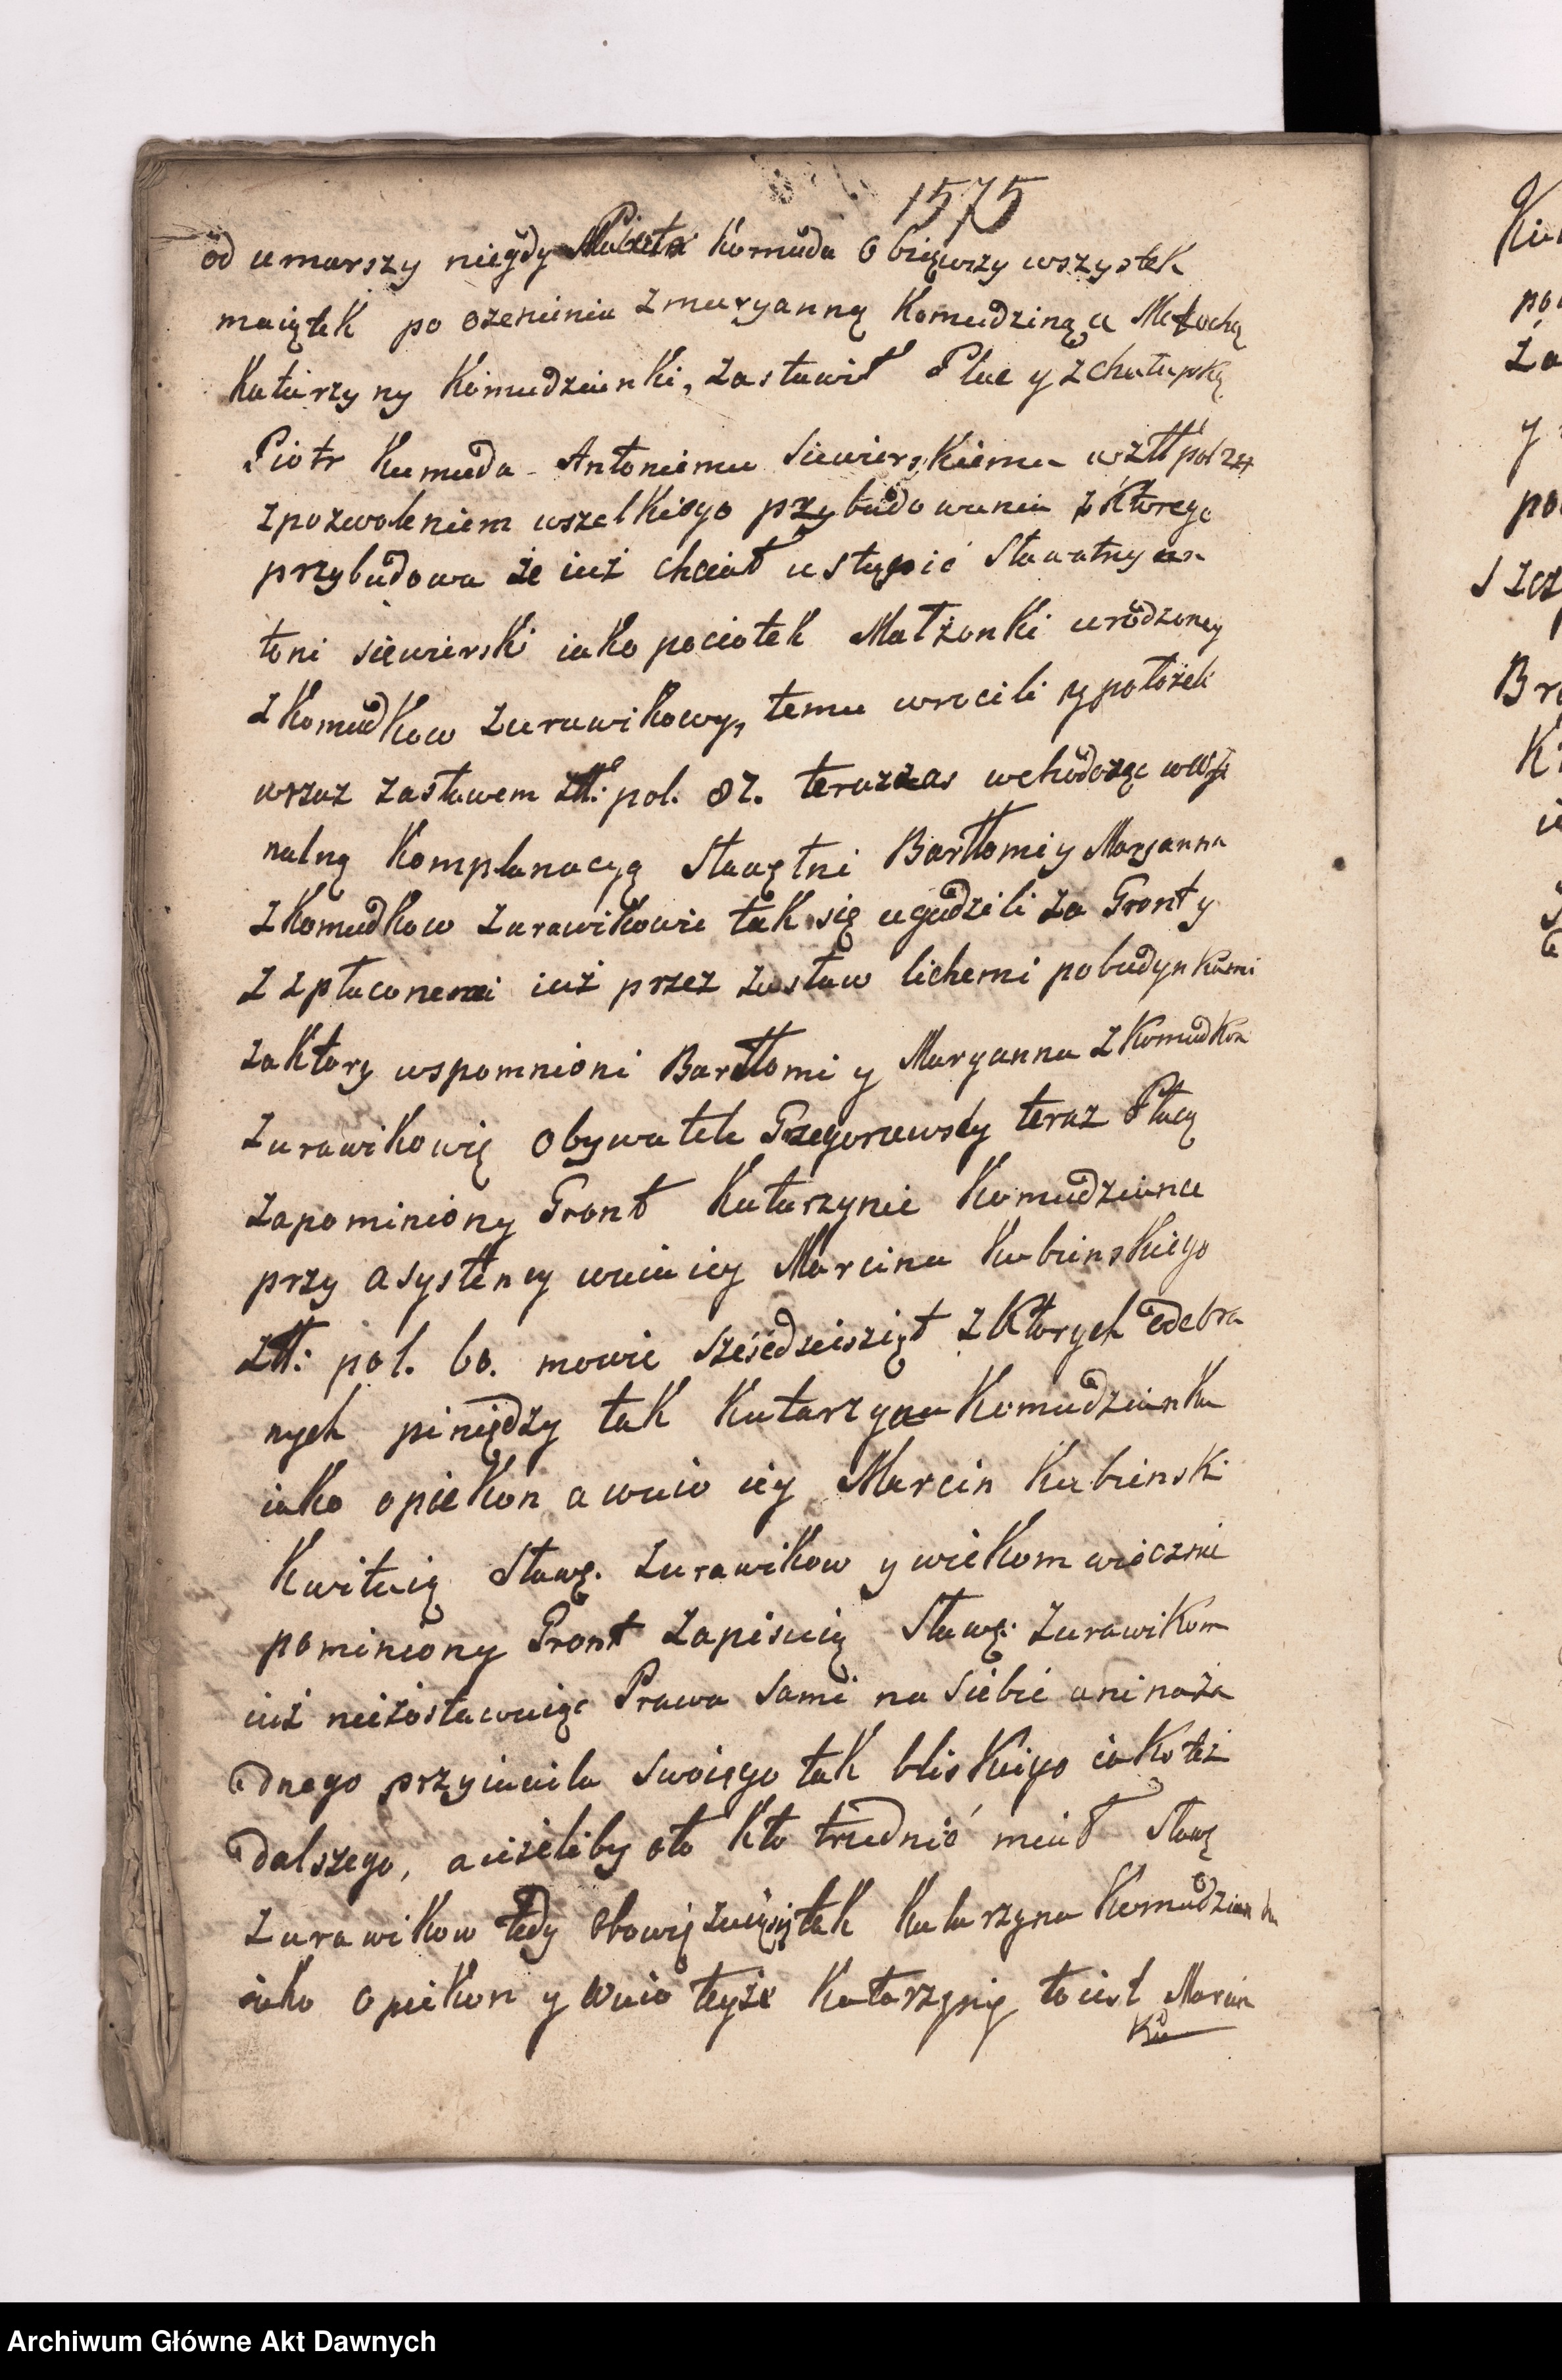 1575
od umarszy niegdy Piotra Komuda obiąwszy wszystek
maiątek po ożenieniu z maryanną Komudziną a Macochą
Katarzyny Komudzianki, zastawił Plac y z chałupką
Piotr Kumuda Antoniemu Siewierskiemu w ztł pol 24
z pozwoleniem wszelkiego przybudowania z ktorego
przybudowa że iuż chciał ustąpić Sławatny an
toni siewierski iako pociotek Małżonki urodzoney
z Komudkow Zurawikowy, temu wrocili y położeli
wraz zastawem ztł: pol. 82. teraz zas wchodząc w
nalną Komplanacyą Sławętni Bartłomi y Maryanna
z Komudkow Zurawikowie tak się ugodzili za Gront y
z zpłaconemi iuż przez zastaw lichemi pobudynkami
za ktory wspomnioni Bartłomi y Maryanna z Komudkow
Zurawikowie obywatele Grzegorzewscy teraz Płacą
zapominiony Gront Katarzynie Komudziance
przy asystency wuia iey Marcina Kubinskiego
ztł: pol. 60. mowie sześćdziesziąt z ktorych odebra
nych piniędzy tak Katarzyna Komudzianka
iako opiekon a wuio iey Marcin Kubienski
Kwituią Sławę. Zurawikow y wiekom wiecznie
pominiony Gront zapisuią Sławę: Zurawikom
iuż niezostawuiąc Prawa sami na siebie ani na ża
dnego przyiaciela swoiego tak bliskiego iako też
dalszego, a ieżeliby oto kto trudnić miał Sławę
Zurawikow tedy obowięzuią się tak Katarzyna Komudzianka
iako opiekon y wuio teyże Katarzyny to iest Marcin
Ku
Archiwum Główne Akt Dawnych